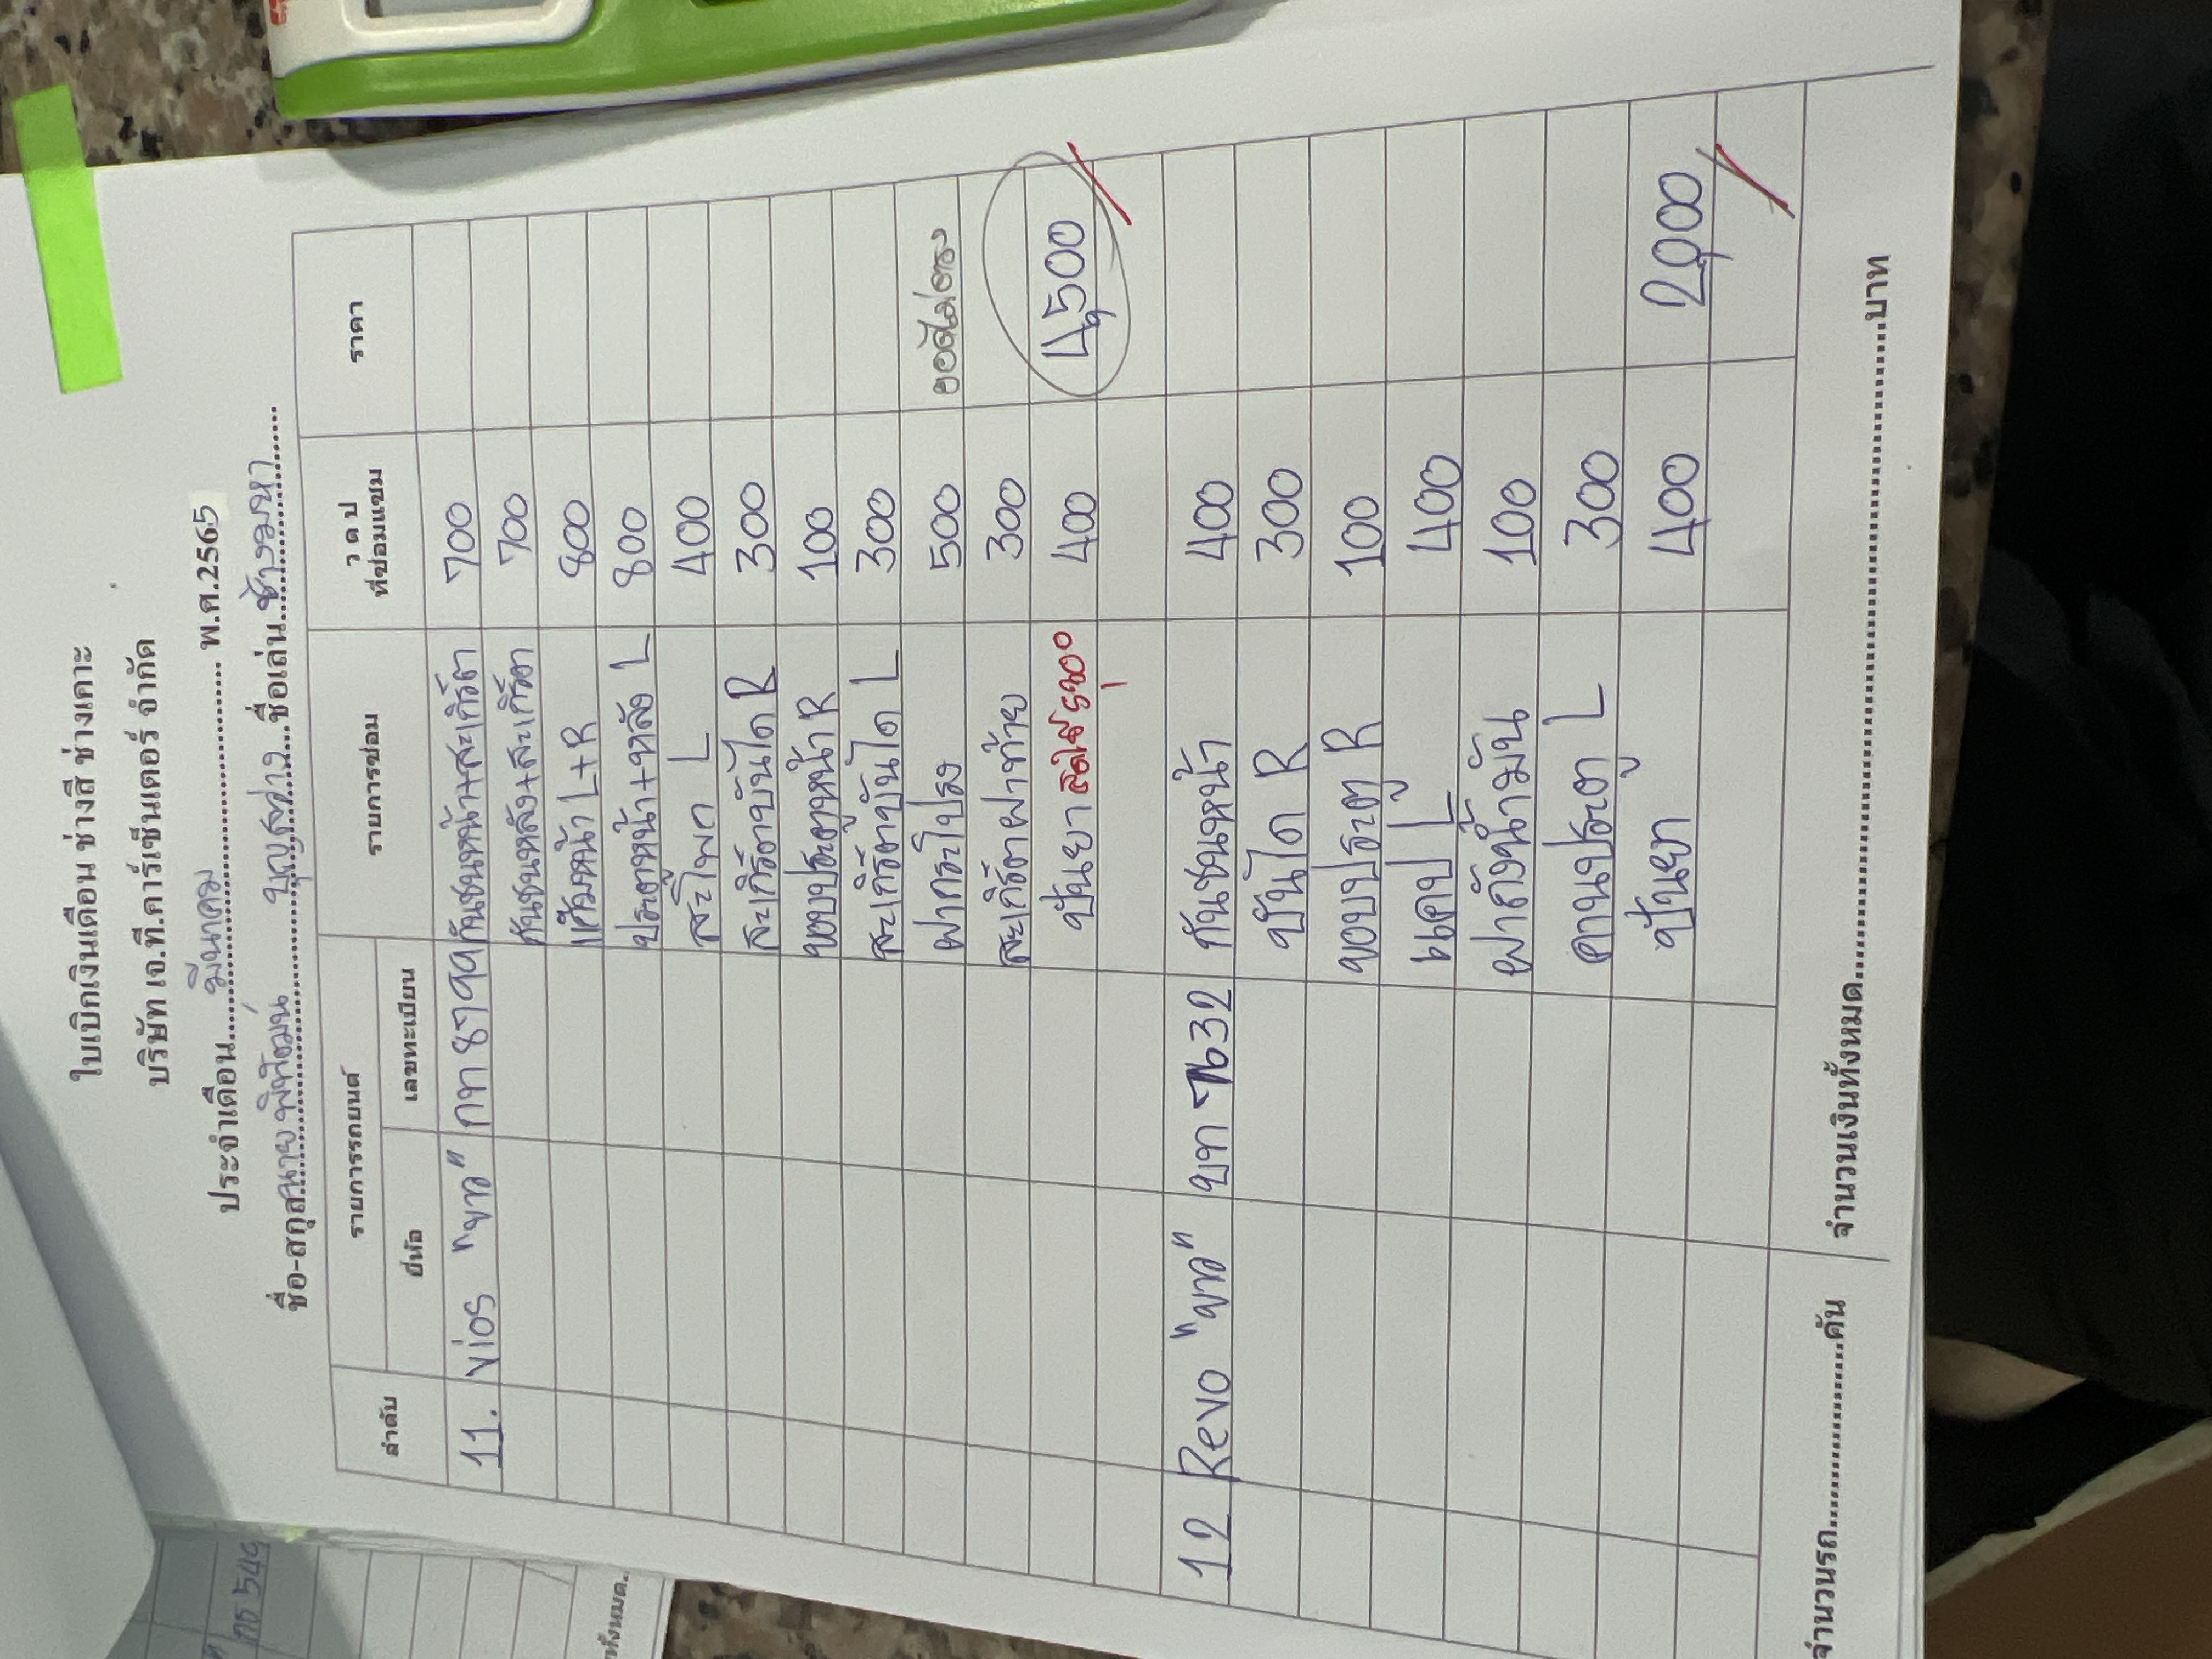 ใบเบิกเงินเดือน ช่างสี ช่างเคาะ
บริษัท เจ.ที.คาร์เซ็นเตอร์ จำกัด
ประจำเดือน....มีนาคม.... พ.ศ.2565
ชื่อ-สกุล นายพิพัฒน์ บุญสว่าง ชื่อเล่น ช้าง
ลำดับ รายการรถยนต์ รายการซ่อม ว ด ป ที่ซ่อมแซม ราคา
ยี่ห้อ เลขทะเบียน
11. Vios "ขาว" กท 8799 กันชนหน้า+สะเกิร์ต 700
กันชนหลัง+สะเกิร์ต 700
แก้มหน้า L+R 800
ประตูหน้า+หลัง L 800
สะโพก L 400
สะเกิร์ตบันได R 300
ขอบประตูหน้า R 100
สะเกิร์ตบันได L 300
ฝากระโปรง 500 ยอดไม่ตรง
สะเกิร์ตฝาท้าย 300
ปั่นยา 400 4,500
12 Revo "ขาว" บท 7632 กันชนหน้า 400
บันได R 300
ขอบประตู R 100
แคป L 400
ฝาถังน้ำมัน 100
คานประตู L 300
ปั่นยา 400 2,000
จำนวนรถ....................คัน จำนวนเงินทั้งหมด....................บาท
กธ 549
ทั้งหมด..